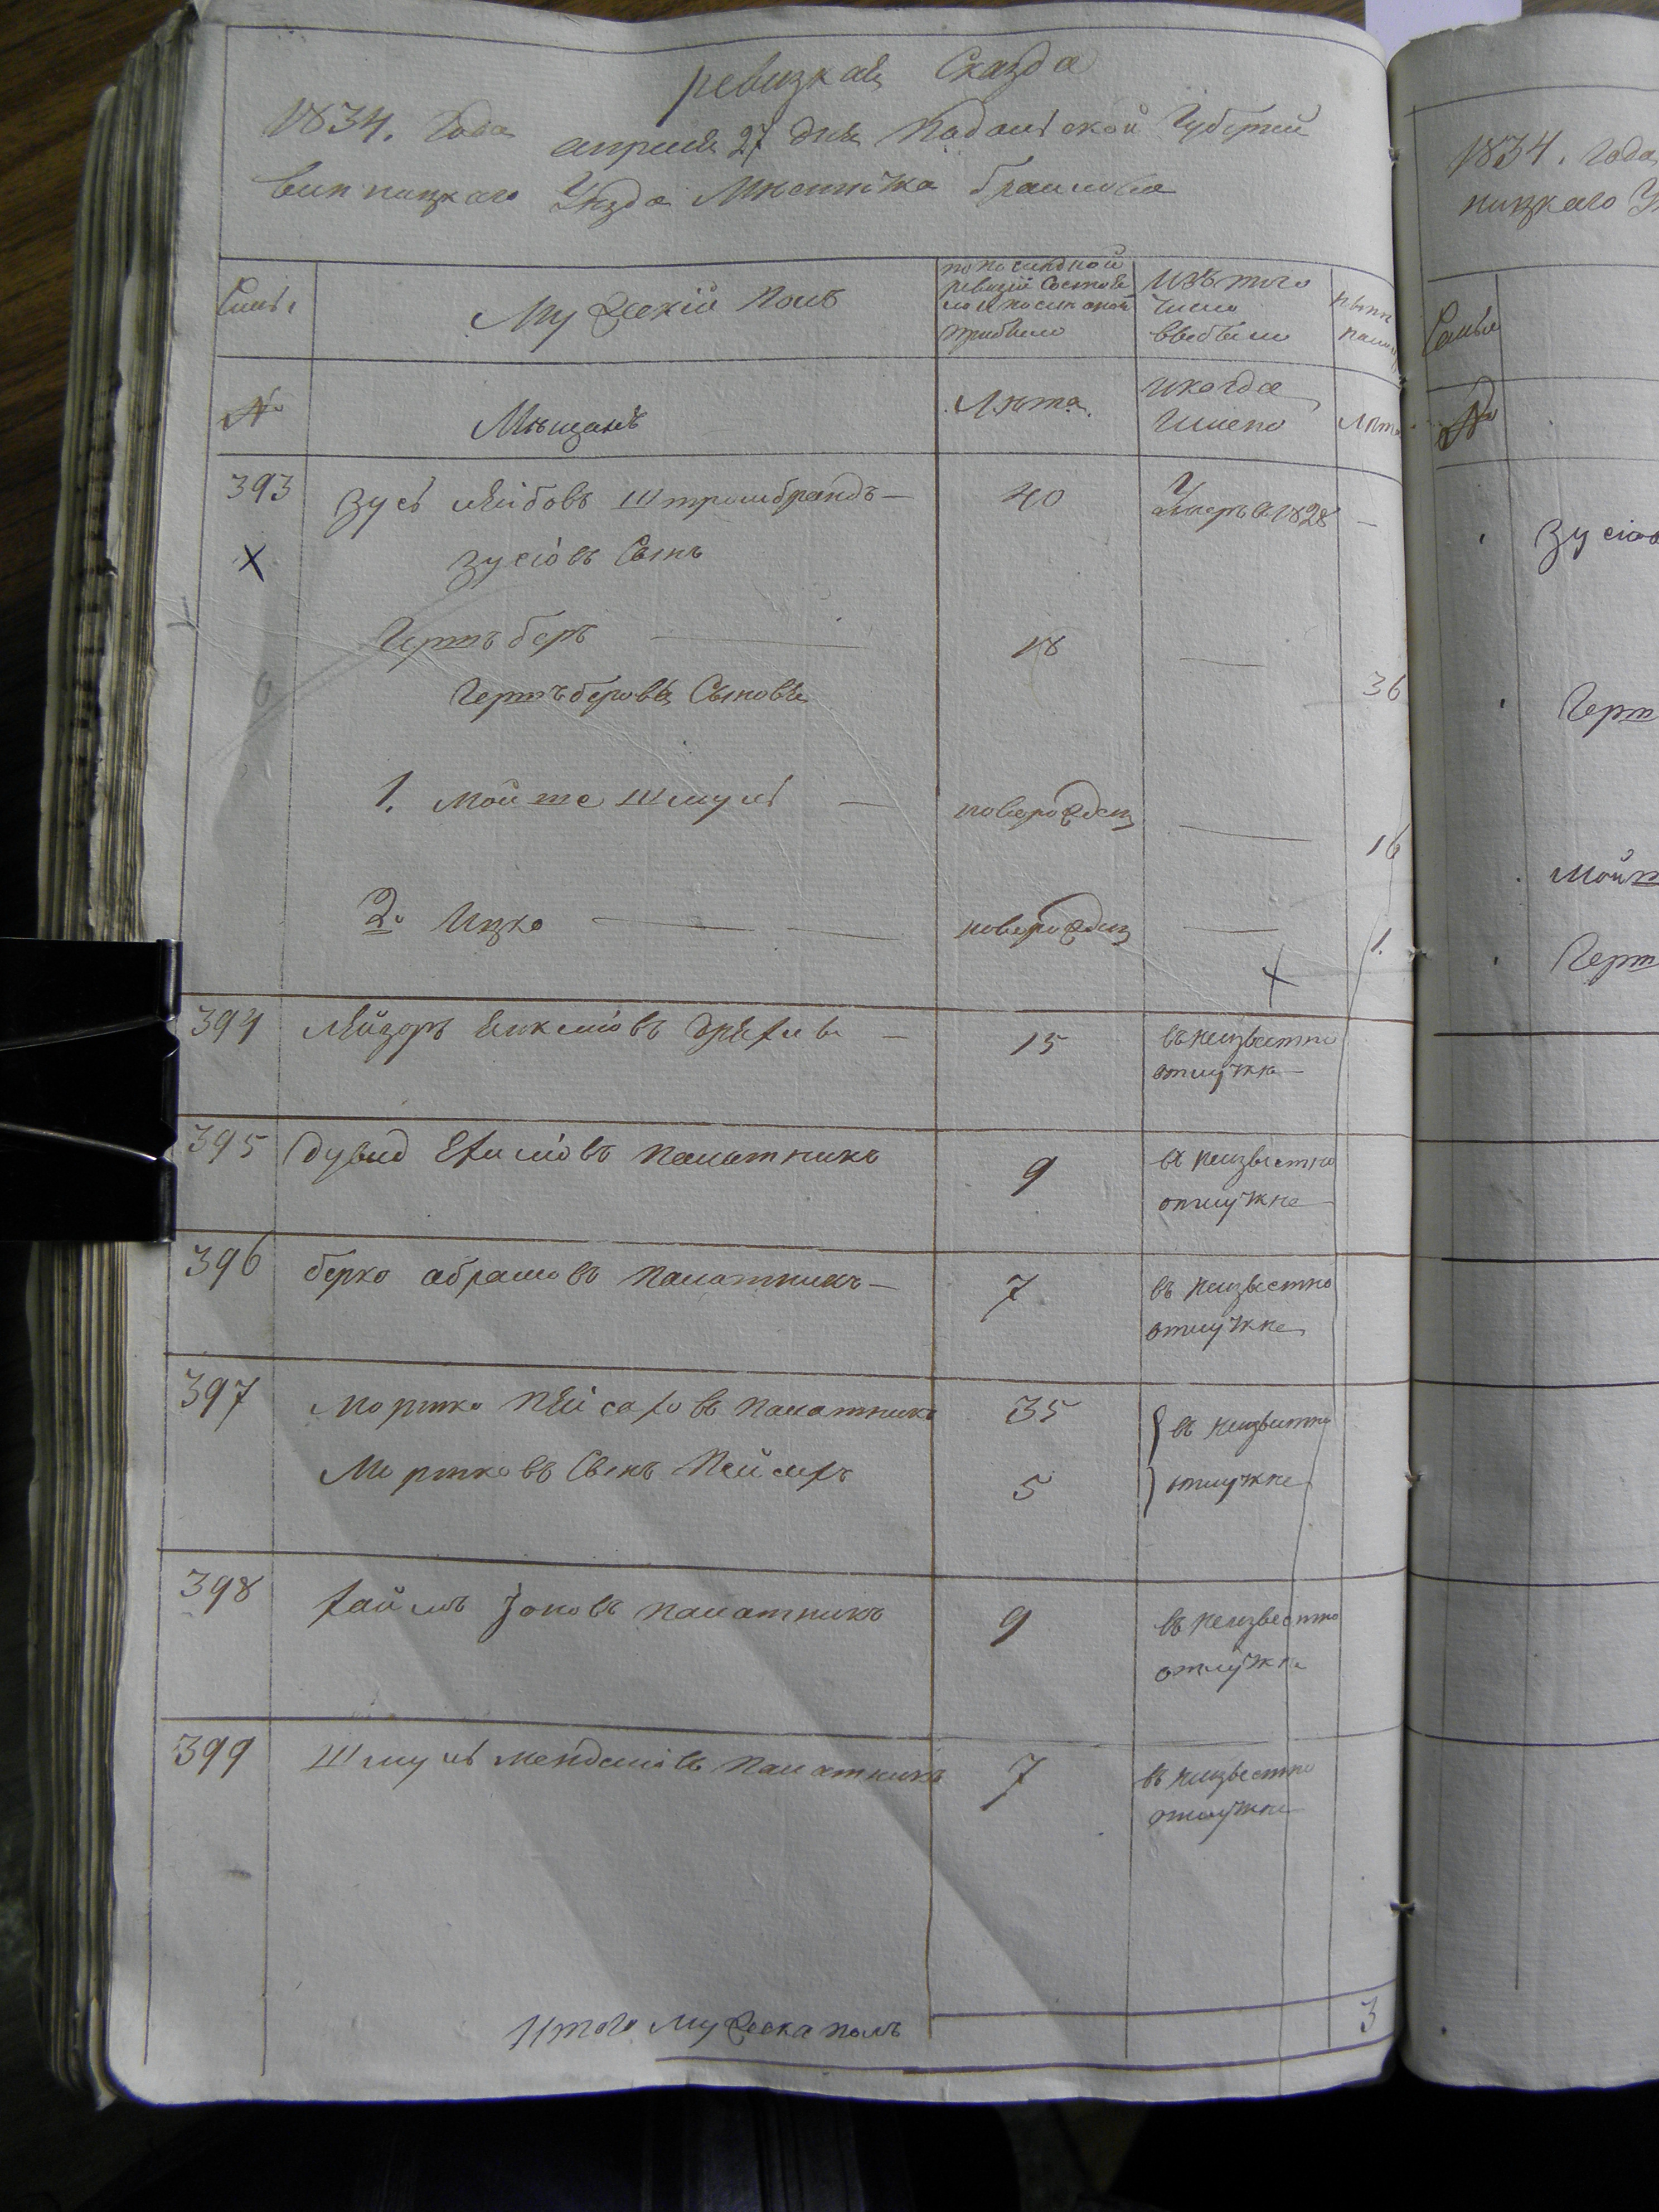 ревизкая Сказда
1834. Года апреля 27 дня Подольской Губернии
винницкаго Уезда Местечка браилова
Семьи
Мужеский Полъ
по последной
ревизии Состояло
и после оной
прибыло
Изъ того
число
выбыло
ныне
налицо
№
Мещане
Лета
и когда
имено
Лета
393
Зусь лейбовъ Штромбрандъ —
40
Умеръ в 1828
—
Зусіовъ Сынъ
Гершъ беръ —
18
—
36
Гершъ беровы Сыновья
1. Мойше Шмуль —
новорожден
—
16
2. Ицко —
новорожден
—
1.
394
Лейзоръ
—
15
въ неизвестно
отлучке —
395
дувид Ехиліовъ Палатникъ
9
въ неизвестно
отлучке —
396
берко абрамовъ Палатникъ —
7
въ неизвестно
отлучке
397
Мортко Пейсаховъ Палатникъ
35
въ неизвестно
Мортковъ Сынъ Пейсахъ
5
отлучке
398
хаимъ Зоновъ Палатникъ
9
въ неизвестно
отлучке
399
Шмуль менделіовъ Палатникъ
7
въ неизвестно
отлучке
Итого мужеска полъ
3
1834. Года
ницкаго У
Семьи
№
Зусіов
Герш
Мойш
Герш